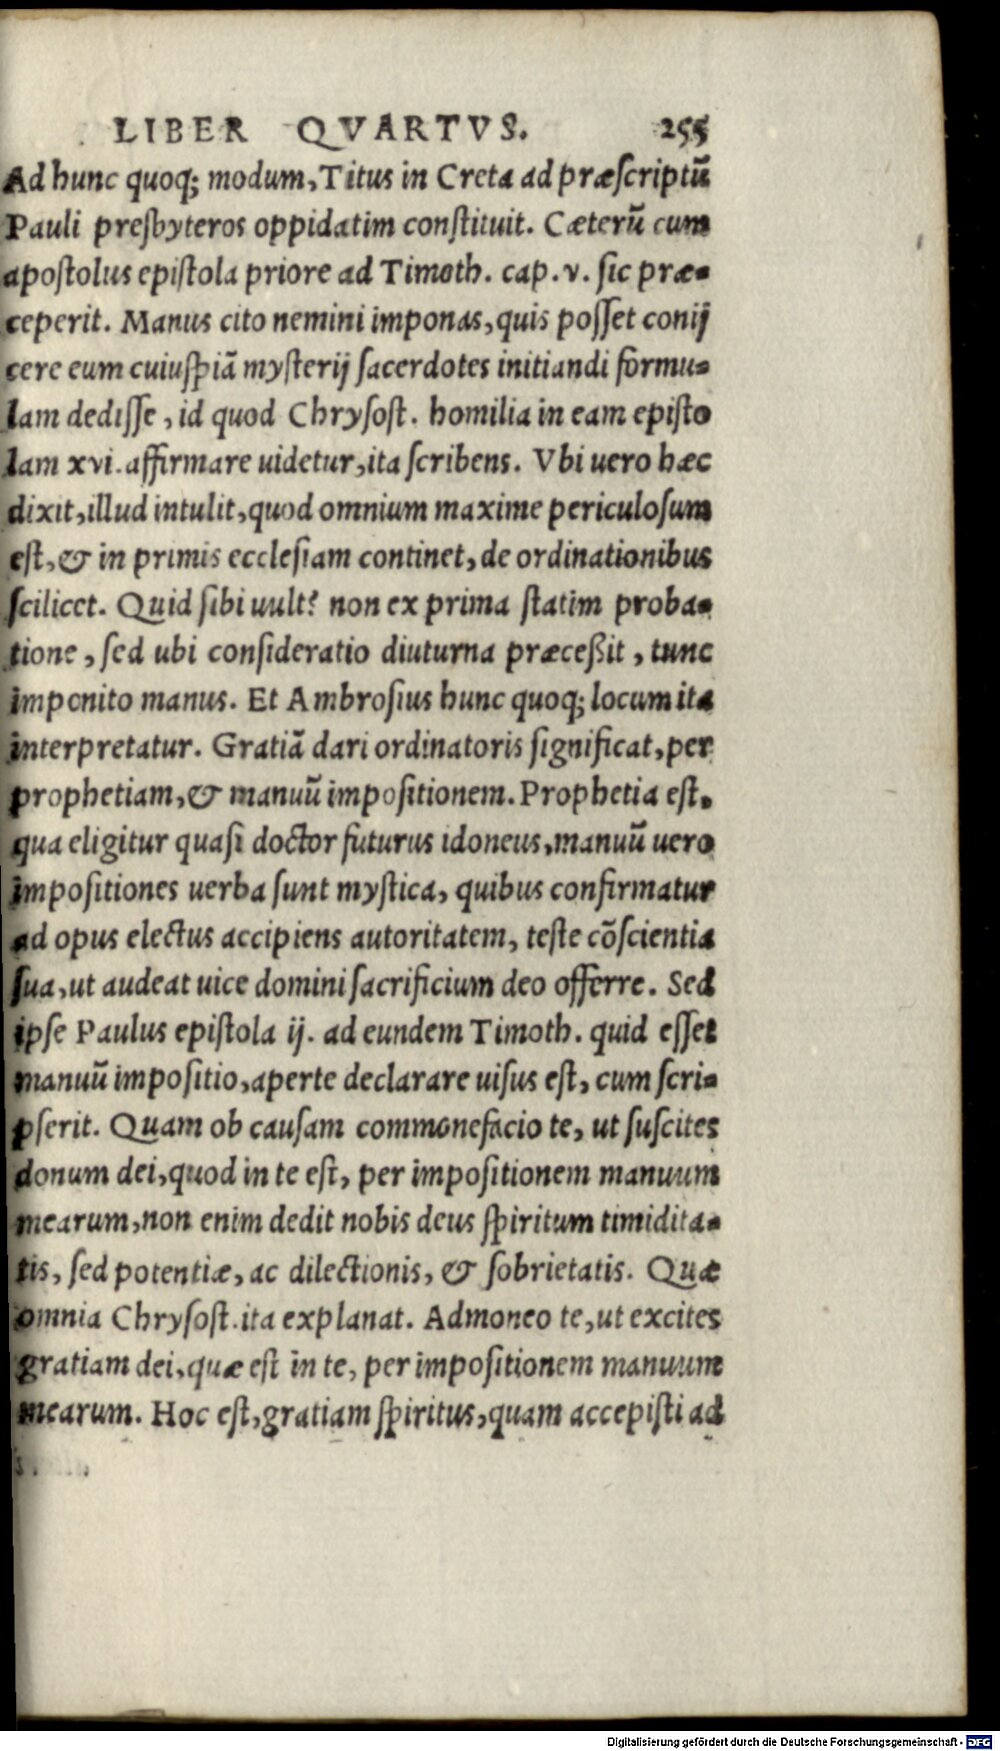 LIBER QVARTVS. 255
Ad hunc quoq; modum, Titus in Creta ad præscriptū
Pauli presbyteros oppidatim constituit. Cæterū cum
apostolus epistola priore ad Timoth. cap. v. sic præ-
ceperit. Manus cito nemini imponas, quis posset conij
cere eum cuiuspiā mysterij sacerdotes initiandi formu-
lam dedisse, id quod Chrysost. homilia in eam episto
lam xvi. affirmare uidetur, ita scribens. Vbi uero hæc
dixit, illud intulit, quod omnium maxime periculosum
est, & in primis ecclesiam continet, de ordinationibus
scilicet. Quid sibi uult? non ex prima statim proba-
tione, sed ubi consideratio diuturna præceßit, tunc
imponito manus. Et Ambrosius hunc quoq; locum ita
interpretatur. Gratiā dari ordinatoris significat, per
prophetiam, & manuū impositionem. Prophetia est.
qua eligitur quasi doctor futurus idoneus, manuū uero
impositiones uerba sunt mystica, quibus confirmatur
ad opus electus accipiens autoritatem, teste cōscientia
sua, ut audeat uice domini sacrificium deo offerre. Sed
ipse Paulus epistola ij. ad eundem Timoth. quid esset
manuū impositio, aperte declarare uisus est, cum scri-
pserit. Quam ob causam commonefacio te, ut suscites
donum dei, quod in te est, per impositionem manuum
mearum, non enim dedit nobis deus spiritum timidita-
tis, sed potentiæ, ac dilectionis, & sobrietatis. Quæ
omnia Chrysost. ita explanat. Admoneo te, ut excites
gratiam dei, quæ est in te, per impositionem manuum
mearum. Hoc est, gratiam spiritus, quam accepisti ad
Digitalisierung gefördert durch die Deutsche Forschungsgemeinschaft - DFG